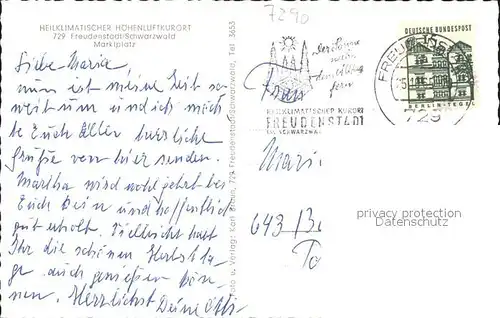 7290
HEILKLIMATISCHER HÖHENLUFTKURORT
729 Freudenstadt-Schwarzwald
Marktplatz
Liebe Maria
nun ist meine Zeit so
weit um und ich möch
te Euch Allen herzliche
Grüße von hier senden.
Martha wird wohl jetzt bei
Euch sein und hoffentlich
gut erholt. Vielleicht habt
Ihr die schönen Herbstta
ge auch genießen kön-
nen. Herzlichst Deine
Foto u. Verlag: Karl 729 Freudenstadt-Schwarzwald, Tel. 3655
der Sonne
nah
dem Alltag
fern
HEILKLIMATISCHER KURORT
FREUDENSTADT
IM SCHWARZWA
FREUDENST
729
DEUTSCHE BUNDESPOST
BERLIN-TEGEL
Frau
Mari
643
privacy protection
Datenschutz